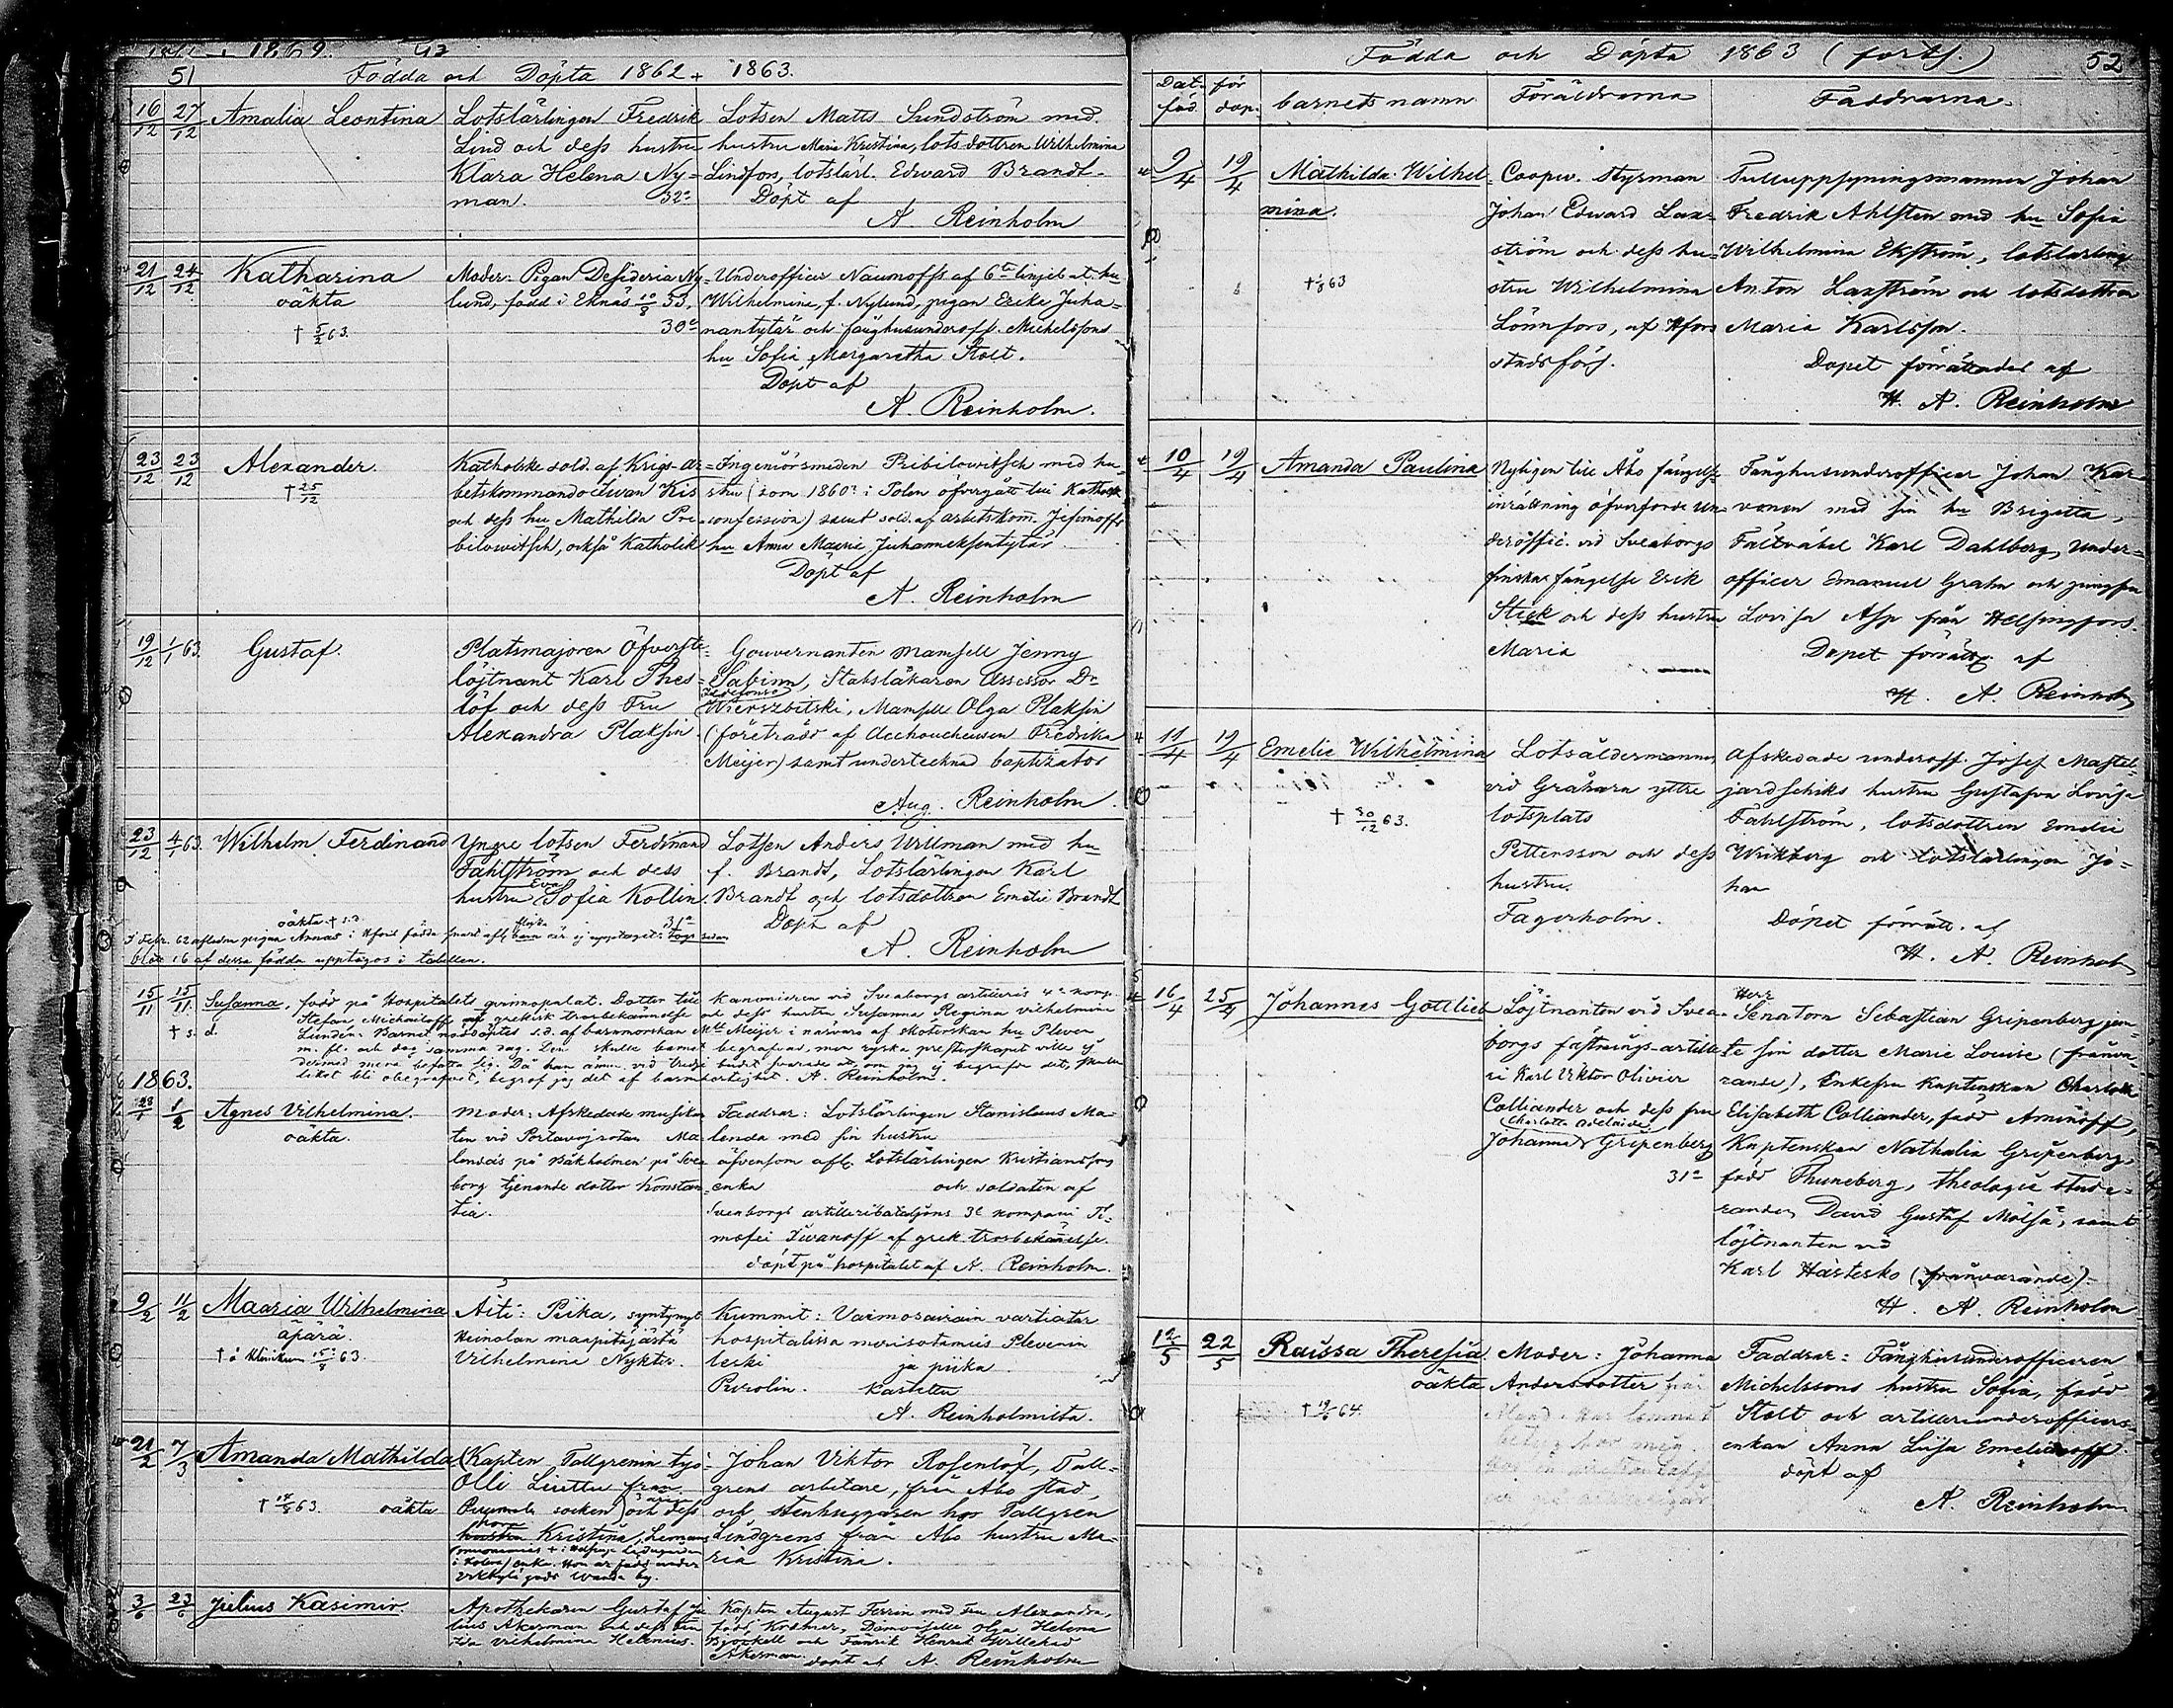 1869.
51
Födda och Döpta 1862 + 1863.
16/12 27/12 Amalia Leontina
Lotslärlingen Fredrik
Lind och dess hustru
Klara Helena Ny-
man. 32a
Lotsen Matts Sundström med
hustru Maria Kristina, lotsdottren Wilhelmina
Lindfors, lotslärl. Edward Brandt.
Döpt af
A. Reinholm
21/12 24/12 Katharina
oäkta
† 5/2 63.
Moder: Pigan Desideria Ny-
lund, född i Eknäs 10/8 33.
30a
Underofficer Naumoffs af 6te linjebat. hu
Wilhelmina, f. Nylund, pigan Erike Juha-
nantytär och fånghusunderoff. Michelssons
hu Sofia Margaretha Stolt.
Döpt af
A. Reinholm.
23/12 23/12 Alexander.
† 25/12
Katholske sold. af Krigs-ar-
betskommando Iwan Kis
och dess hu Mathilda Pri-
bilowitsch, också Katholik
Ingeniörsmeden Pribilowitsch med hu-
stru (som 1860? i Polen öfvergått till Kathol.
confession) samt sold. af arbetskom. Jefimoffs
hu Anna Maria Juhanneksentytär
Döpt af
A. Reinholm
19/12 1/1 63. Gustaf.
Platsmajoren Öfverste-
löjtnant Karl Thes-
löf och dess Fru
Alexandra Plaksin.
Gouvernanten Mamsell Jenny
Sabinn, Stabsläkaren Assessor Dr
Ildefonso
Wierszbitski, Mamsell Olga Plaksin
(företrädd af Acchoucheusen Fredrika
Meijer) samt undertecknad baptizator
Aug. Reinholm.
23/12 4/1 63. Wilhelm Ferdinand
Yngre lotsen Ferdinand
Fahlström och dess
hustru Eva Sofia Kollin.
31a
Lotsen Anders Willman med hu
f. Brandt, Lotslärlingen Karl
Brandt och lotsdottren Emelie Brandt
Döpt af
A. Reinholm
blott 16 af dessa födda upptagos i tabellen.
15/11 15/11 Susanna, född på Hospitalets
† s. d.
Stefan Michailoff af grekisk trosbekännelse och dess hustru Susanna Regina Vilhelmina
Lundén. Barnet nöddöptes s.d. af barnmorskan Mll Meijer i närvaro af skoterskan hu Pleven
likt bli obegrafvet, begrof jag det af barmhertighet. A. Reinholm.
1863.
23/1 1/2 Agnes Vilhelmina.
oäkta.
Moder: Afskedade musikan
ten vid Portavojrotan Ma-
lendas på Bakholmen på Svea
borg tjenande dotter Konstan-
tia.
Faddrar: Lotslärlingen Stanislaus Ma-
lenda med sin hustru
äfvensom afl. Lotslärlingen Kristiansfors
enka och soldaten af
Sveaborgs artilleribataljons 3e kompani Ti-
mofei Iwanoff af grek. trosbekännelse.
döpt på hospitalet af A. Reinholm.
9/2 11/2 Maaria Wilhelmina
äpärä.
Äiti: Piika, syntynyt
Heinolan maapitäjästä
Vilhelmina Nykter.
Kummit: Vaimosairain vartiatar
hospitalissa
leski ja piika
Purolin.
A. Reinholmilta.
21/2 7/3 Amanda Mathilda
† 14/8 63. oäkta
(Kapten Tallgrenin työ-
Olli Lirettu från
socken) och dess
Kristina
Johan Viktor Rosenlöf, Tall-
grens arbetare, från Åbo stad,
och stenhuggaren hos Tallgren
Lindgrens från Åbo hustru Ma-
ria Kristina.
3/6 23/6 Julius Kasimir.
Apothekaren Gustaf Ju
lius Åkerman och dess
Vilhelmina Helenius.
Kapten August Ferrin med Fru Alexandra,
född Krämer, Damoiselle Olga Helena
Björkell och Fänrik Henrik Willehad
Åkerman. döpt af A. Reinholm
Födda och Döpta 1863 (forts.) 52
Dat. för
föd. dop. barnets namn Föräldrarna Faddrarna.
9/4 19/4 Mathilda Wilhel-
mina.
Coopv. styrman
Johan Edward Lax-
ström och dess hu-
stru Wilhelmina
Lönnfors, af Hfors
stadsförs.
Tulluppsyningsmannen Johan
Fredrik Ahlsten med hu Sofia
Wilhelmina Ekström, lotslärling
Anton Laxström och lotsdottren
Maria Karlsson.
Dopet förrättadet af
H. A. Reinholm
10/4 19/4 Amanda Paulina
Nyligen till Åbo fängelse-
inrättning öfverförde un-
deroffic. vid Sveaborgs
finska fängelse Erik
Stick och dess hustru
Maria
Fånghusunderofficer Johan Kar-
vonen med sin hu Brigitta,
Fältväbel Karl Dahlberg, under-
officer Emanuel Grahn och jungfru
Lovisa Asp från Helsingfors.
Dopet förrättg af
H. A. Reinholm
11/4 19/4 Emelie Wilhelmina
† 30/12 63.
Lotsåldermannen
vid Gråhara yttre
lotsplats
Pettersson och dess
hustru
Fagerholm.
Afskedade underoff. Josef Mastel-
jardschiks hustru Gustafva Lovisa
Fahlström, lotsdottren Emelie
Wrikberg och lotslärlingen Jo-
han
Döpet förrätt. af
H. A. Reinholm
16/4 25/4 Johannes Gottlieb
Löjtnanten vid Svea-
borgs fästnings-artille-
ri Karl Viktor Olivier
Calliander och dess fru
Charlotta Adelaide
Johanna Gripenberg
31a
Herr
Senatorn Sebastian Gripenberg jem-
te sin dotter Marie Louise (frånva-
rande), Enkefru Kaptenskan Charlotta
Elisabeth Calliander, född Aminoff,
Kaptenskan Nathalia Gripenberg,
född Thuneberg, theologie stude-
randen David Gustaf Molsa, samt
löjtnanten vid
Karl Hästesko (frånvarande).
H. A. Reinholm
12/5 22/5 Raissa Theresia.
oäkta
† 19/6 64.
Moder: Johanna
Andersdotter från
Faddrar: Fånghusunderofficeren
Michelssons hustru Sofia, född
Stolt och artilleriunderofficers-
enkan Anna Lisa Emelianoff
döpt af
A. Reinholm